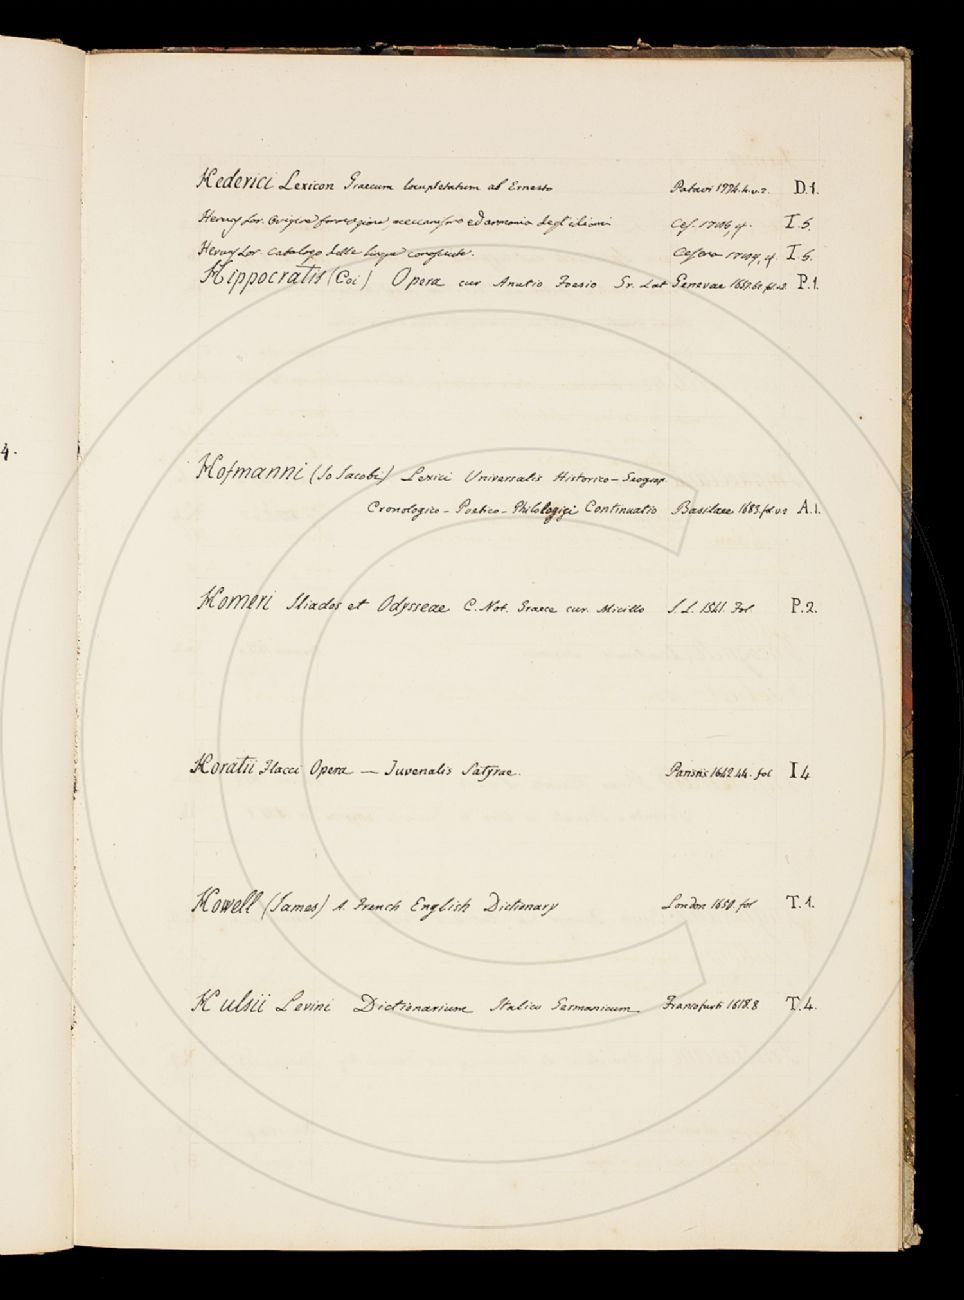 4.
Hederici Lexicon Graecum locupletatum ab Ernesto Patavi 1774. 4. v. 2. D.1.
Hervas Lor. Origine formazione, meccanismo ed armonia degl'idiomi Ces. 1785, 4. I.5.
Hervas Lor. Catalogo delle lingue conosciute. Cesena 1784, 4. I.5.
Hippocratis (Coi) Opera cur Anutio Foesio Gr. Lat Genevae 1657.62 fol. P.1.
Hofmanni (Jo Jacobi) Lexici Universalis Historico-Geograp.
Cronologico-Poetico-Philologici Continuatio Basileae 1683. fol v. 2 A.1.
Homeri Iliados et Odysseae C. Not. Graece cur. Micillo S. L. 1541. Fol P.2.
Horatii Flacci Opera — Juvenalis Satyrae. Parisiis 1642.44. fol I 4
Howell (James) A. French English Dictionary London 1650. fol T.1.
Hulsii Levini Dictionarium Italico Germanicum. Francofurti 1618. 8 T.4.